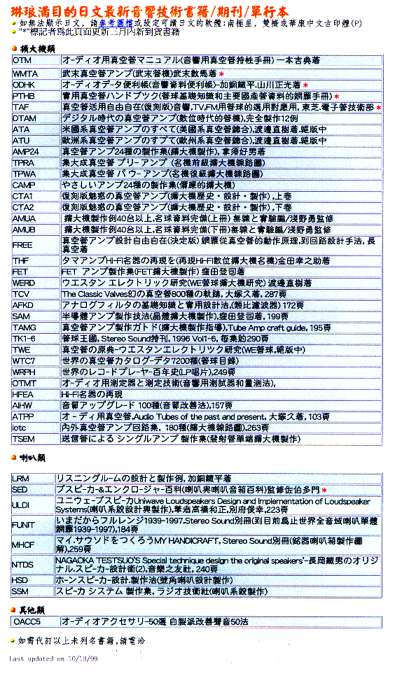 琳琅滿目的日文最新音響技術書籍/期刊/單行本
如無法顯示日文，請參考圖檔或設定可讀日文的軟體:南極星，雙橋或華康中文古印體(P)
"*"標記者為此頁面更新二月內新到貨書籍
擴大機類
OTM オーディオ用真空管マニュアル(音響用真空管特性冊) 一木吉典著
WMTA 武末真空管アンプ(武末管機)武末數馬著 *
ODHK オーディオデータ便利帳(音響資料便利帳)-加銅鐵平.山川正光著 *
PTHB 實用真空管ハンドブック(管球基礎知識和主要國產管資料的綱覽手冊) *
TAF 真空管活用自由自在(復刻版)音響,TV,FM用管球的選用對應用, 東芝.電子管技術部 *
DTAM デジタル時代の真空管アンプ(數位時代的管機),完全製作12例
ATA 米國系真空管アンプのすべて(美國系真空管總合),渡邊直樹著.絕版中
ATU 歐洲系真空管アンプのすべて(歐州系真空管總合),渡邊直樹著.絕版中
AMP24 真空管アンプ24種の製作集(擴大機製作), 拿薄好男著
TPRA 集大成真空管 プリ-アンプ (名機前級擴大機線路圖)
TPWA 集大成真空管 パウ-アンプ(名機後級擴大機線路圖)
CAMP やさしいアンプ24種の製作集(簡輕的擴大機)
CTA1 復刻版魅惑の真空管アンプ(擴大機歷史・設計・製作),上卷
CTA2 復刻版魅惑の真空管アンプ(擴大機歷史・設計・製作),下卷
AMUA 擴大機製作例40台以上,名球資料完備(上冊)無線と實驗編/淺野勇監修
AMUB 擴大機製作例40台以上,名球資料完備(下冊)無線と實驗編/淺野勇監修
FREE 真空管アンプ設計自由自在(決定版) 網羅從真空管的動作原理,到回路設計手法, 長
真空著
THF タマアンプHi-Fi名器の再現を(再現Hi-Fi數位擴大機名機)金田孝之助著
FET FET アンプ製作集(FET擴大機製作) 窪田登司著
WERD ウエスタン エレクトリック研究(WE管球擴大機研究) 渡邊直樹著
TCV The Classic Valves幻の真空管800種の軌跡, 大塚久著, 287頁
AFKD アナログフィルタの基礎知識と實用設計法,(類比濾波器) 172頁
SAM 半導體アンプ製作技法(晶體擴大製作),窪田登司著, 199頁
TAMG 真空管アンプ製作ガイド(擴大機製作指導),Tube Amp craft guide, 195頁
TK1-6 管球王國, Stereo Sound特刊, 1996 Vol1-6, 每集約290頁
TWE 真空管の原典-ウエスタンエレクトリック研究(WE管球,絕版中)
WTC7 世界の真空管カタログ-データ7200種(管球目錄)
WRPH 世界のレコードプレーヤ-百年史(LP唱片),249頁
OTMT オーディオ用測定器と測定技術(音響用測試器和量測法),
HFEA Hi-Fi名器の再現
AIHW 音質アップグレード 100種(音質改善法),157頁
ATPP オ-ディオ用真空管,Audio Tubes of the past and present, 大塚久著, 103頁
iotc 內外真空管アンプ回路集, 180種(擴大機線路圖),263頁
TSEM 送信管による シングルアンプ 製作集(發射管單端擴大機製作)
喇叭類
LRM リスニングルームの設計と製作例, 加銅鐵平著
SED スピーカ-&エンクロ-ジャ-百科(喇叭與喇叭音箱百科)監修佐伯多門 *
ULDI ユニウェ-ブスピ-カUniwave Loudspeakers Design and Implementation of Loudspeaker
Systems(喇叭系統設計與製作),筆者高橋和正,別府俊幸,223頁
FUNIT いまだからフルレンジ1939-1997,Stereo Sound別冊(到目前為止世界全音域喇叭單體
總覽1939-1997),184頁
MHCF マイ.サウンドをつくろうMY HANDICRAFT, Stereo Sound別冊(銘器喇叭箱製作圖
解),259頁
NTDS NAGAOKA TESTSUO'S Special technique design the original speakers'-長岡鐵男のオリジ
ナル.スピーカ-設計術(2),音樂之友社, 240頁
HSD ホーンスピーカ-設計.製作法(號角喇叭設計製作)
SSM スピーカ システム 製作集, ラジオ技術社(喇叭系統製作)
其他類
OACC5 オーディオアクセサリ-50選 自製派改善聲音50法
如需代訂以上未列名書籍,請電洽
Last updated on 10/18/99